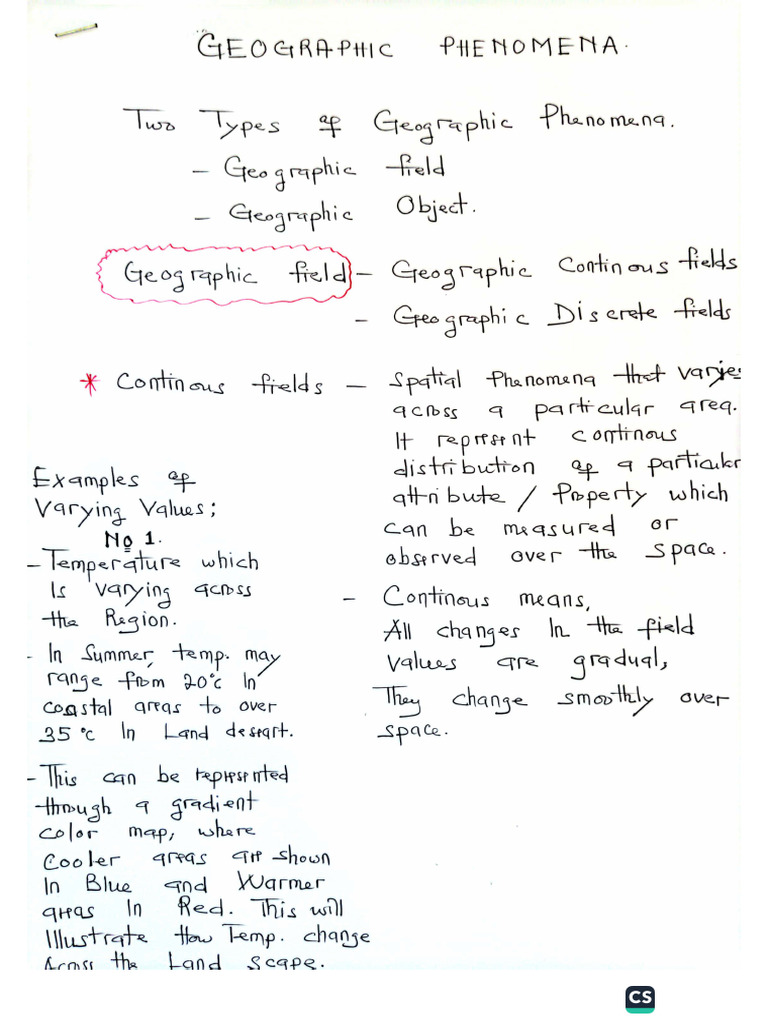 GEOGRAPHIC PHENOMENA.
Two Types of Geographic Phenomena.
- Geographic field
- Geographic Object.
Geographic field - Geographic Continous fields
- Geographic Discrete fields
* Continous fields - Spatial Phenomena that varies
across a particular area.
It represent continous
distribution of a particular
attribute / Property which
can be measured or
observed over the space.
- Continous means,
All changes In the field
values are gradual,
They change smoothly over
space.
Examples of
Varying Values;
No 1.
- Temperature which
Is varying across
the Region.
- In Summer, temp. may
range from 20°c In
coastal areas to over
35°c In Land desert.
- This can be represented
through a gradient
color map, where
Cooler areas are shown
In Blue and Warmer
areas In Red. This will
Illustrate How Temp. change
Across the Land scape.
CS